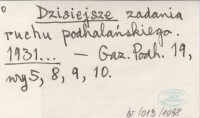 Dzisiejsze zadania
ruchu podhalańskiego.
1931... — Gaz. Podh. 19,
nry 5, 8, 9, 10.